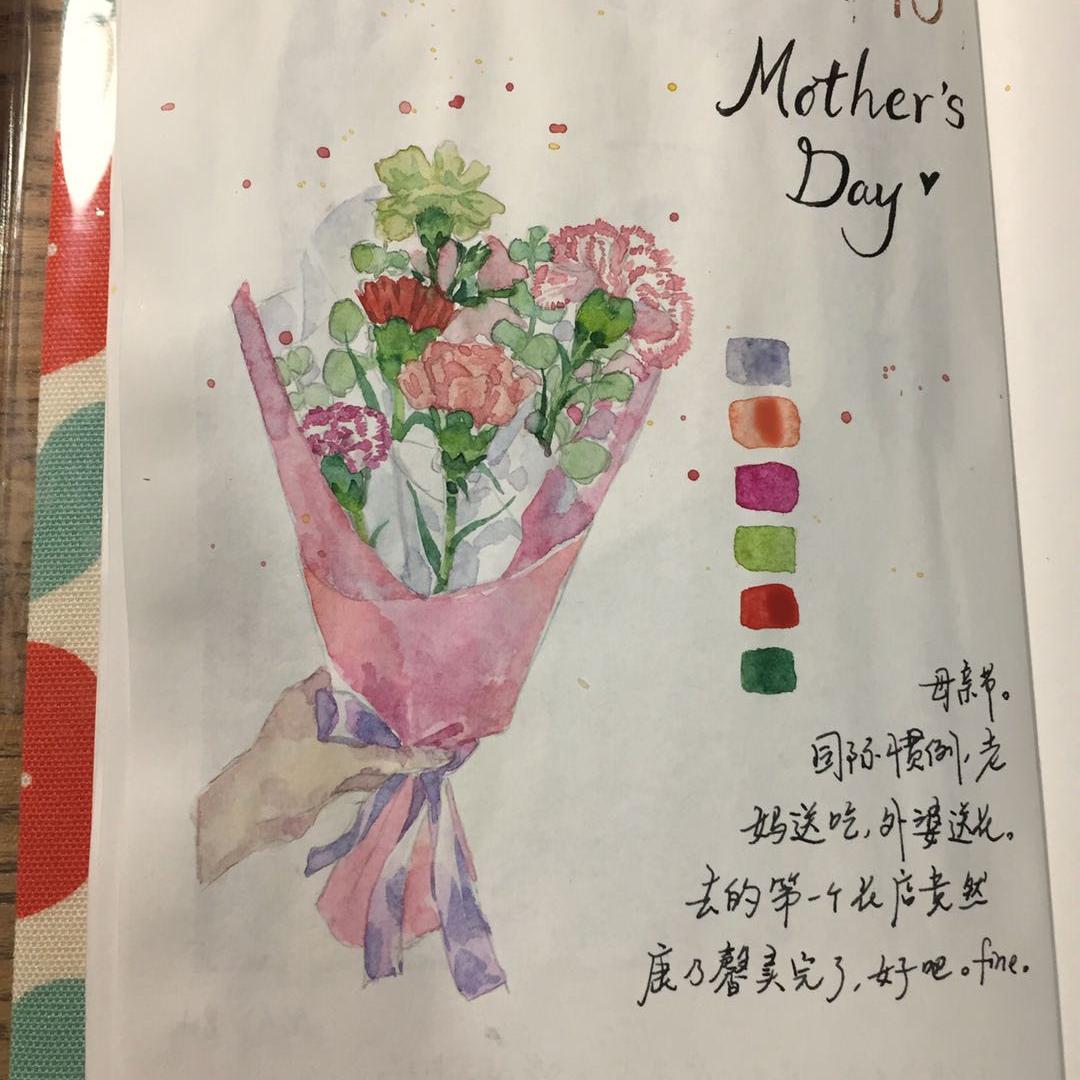 Mother's
Day
母亲节。
国际惯例,老
妈送吃,外婆送花。
去的第一个花店竟然
康乃馨卖完了,好吧。fine.